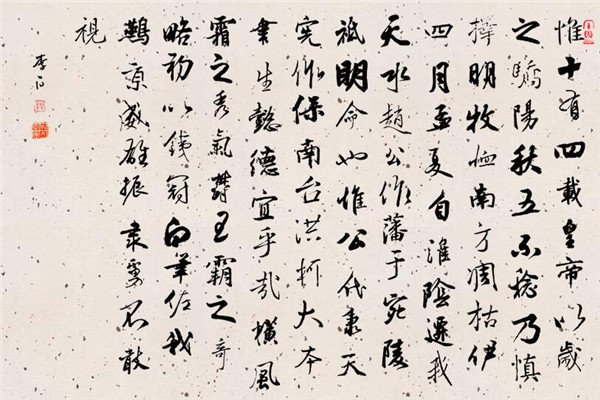 惟十有四載皇帝以歲
之驕陽秋五不稔乃慎
擇明牧恤南方凋枯伊
四月孟夏自淮陰遷我
天水趙公作藩于宛陵
祗明命也惟公代秉天
憲作保南台洪柯大本
聿生懿德宜乎哉橫風
霜之秀氣欝王霸之奇
略初以鐵冠白筆佐我
鷰京威雄振肅虜不敢
視
李白